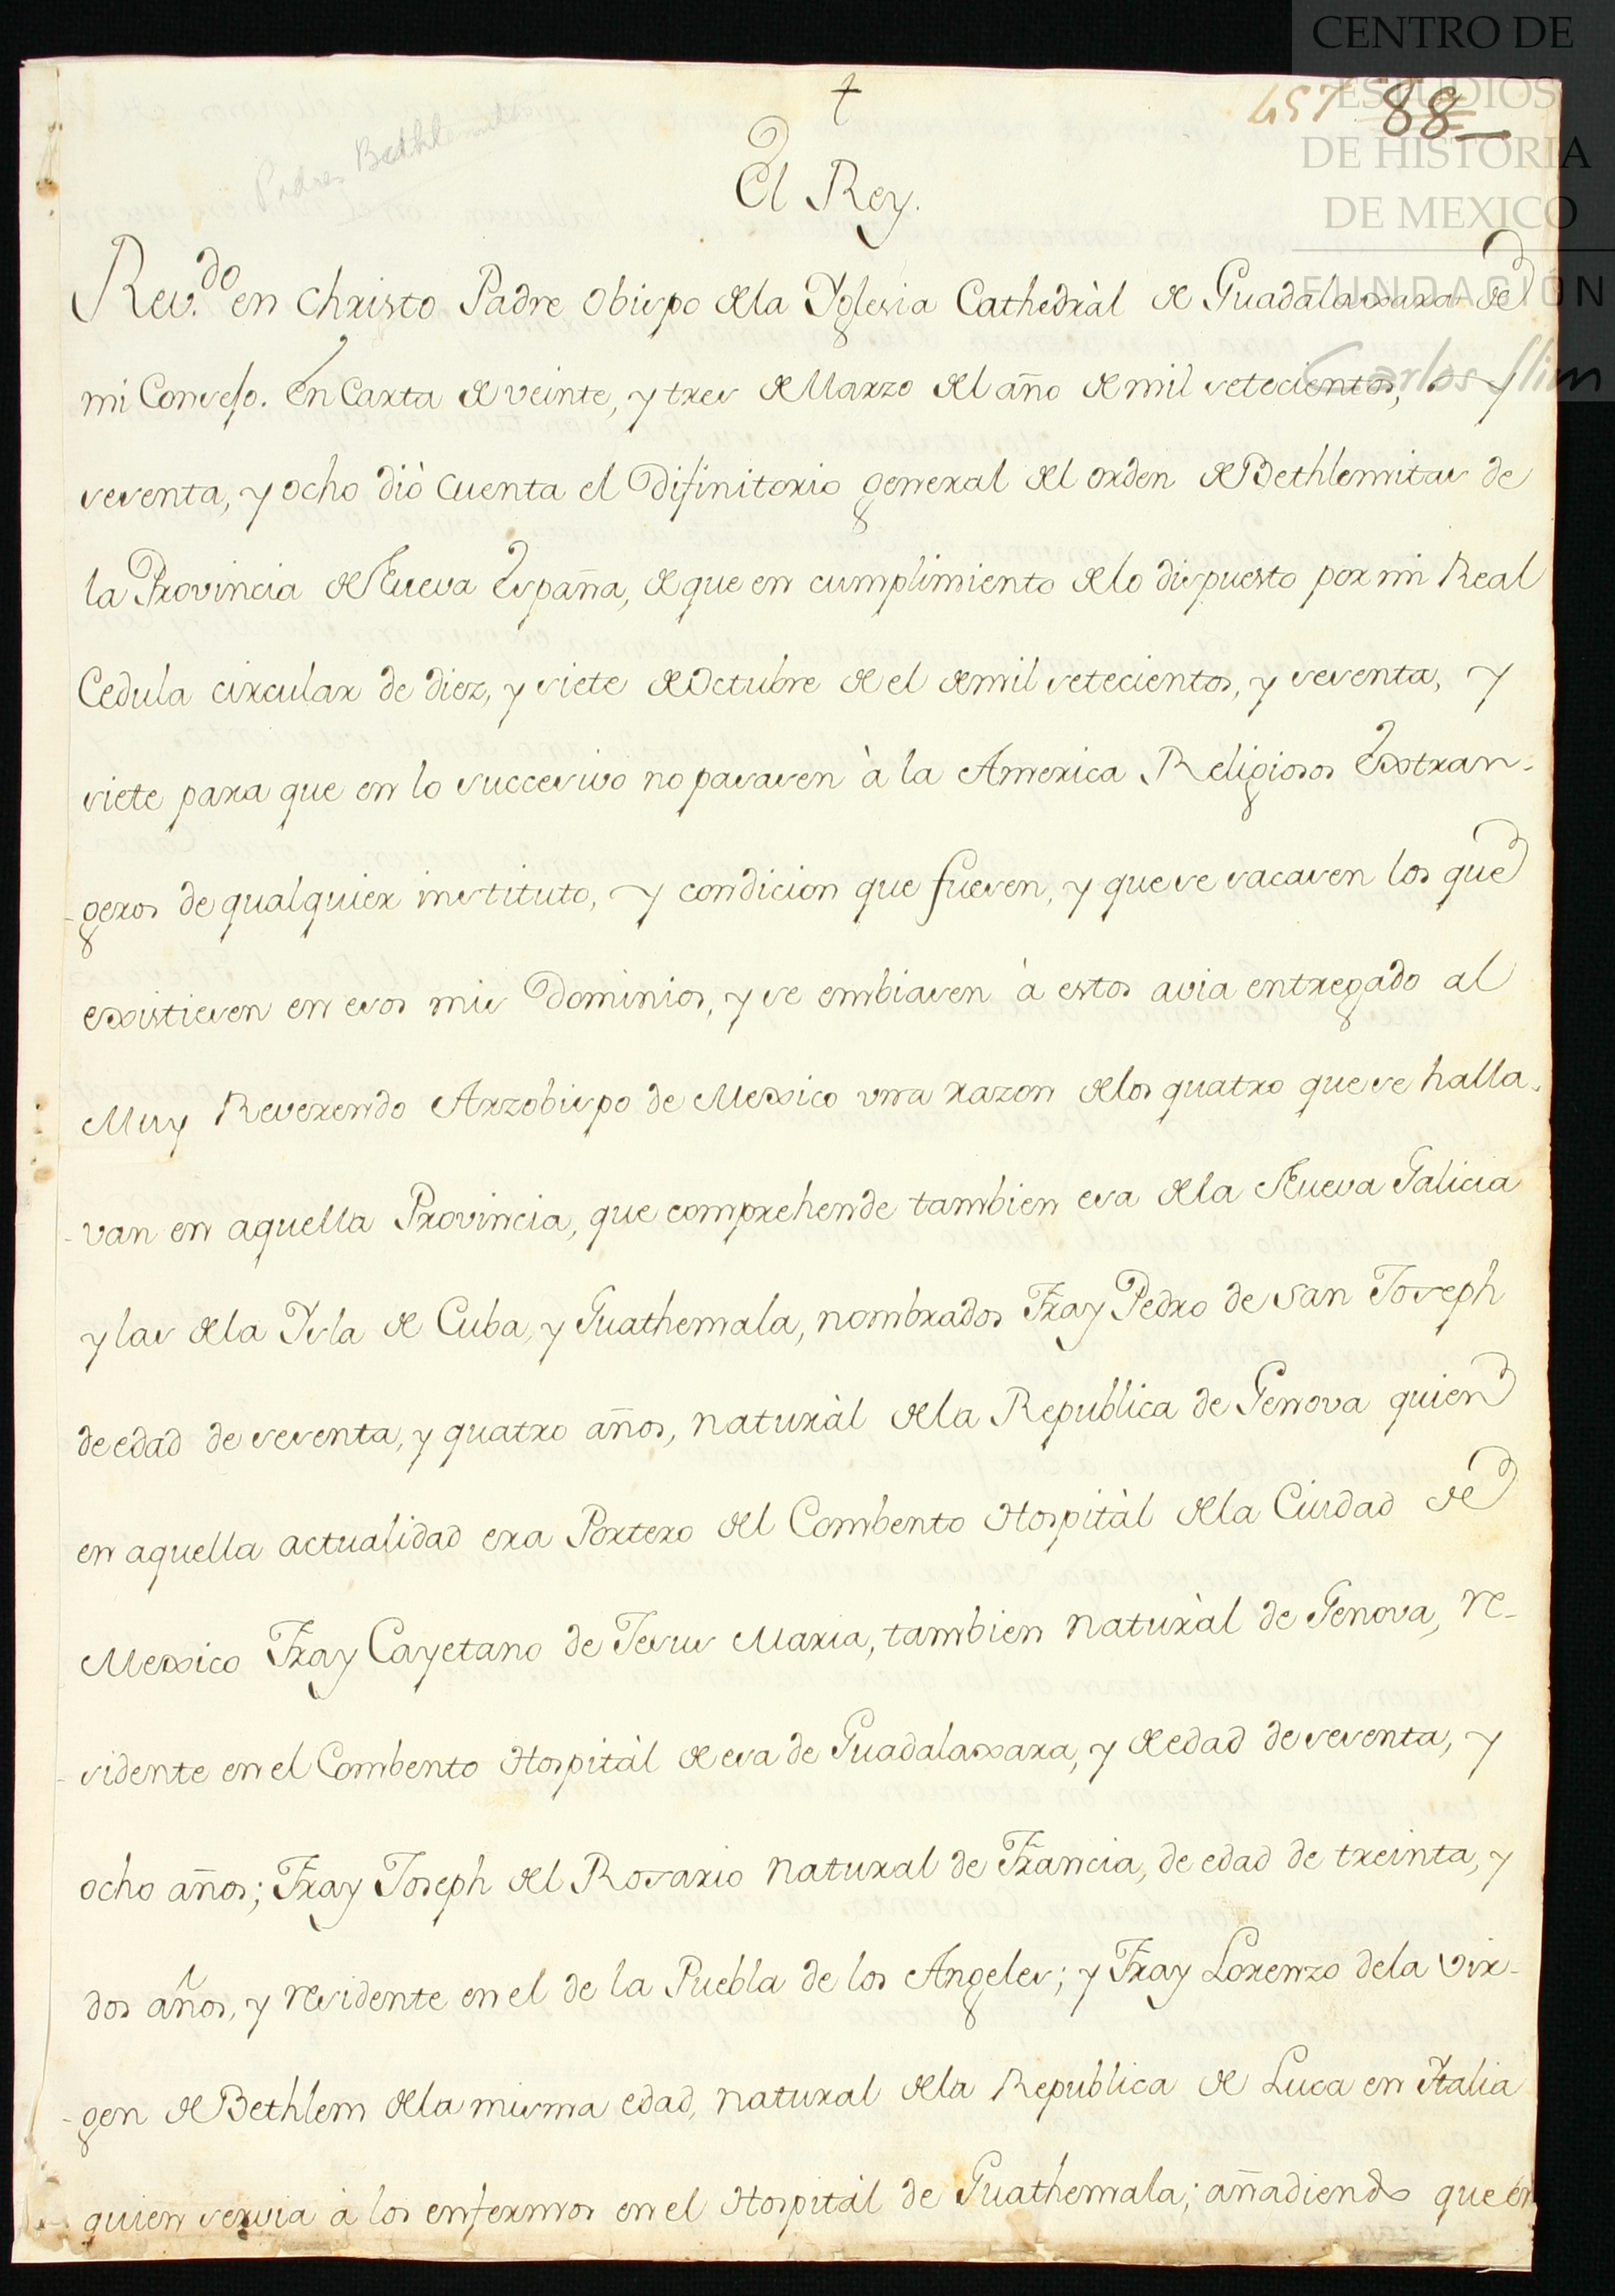 CENTRO DE
ESTUDIOS
DE HISTORIA
DE MEXICO
FUNDACIÓN
Carlos Slim
†
457 88
Padres Bethlemitas
El Rey.
Rev.do en Christo Padre Obispo dela Yglesia Cathedràl de Guadalaxara de
mi Consejo. En Carta de veinte, y tres de Marzo del año de mil setecientos, y
sesenta, y ocho diò Cuenta el Difinitorio general del orden de Bethlemitas de
la Provincia de Nueva España, de que en cumplimiento delo dispuesto por mi Real
Cedula circular de diez, y siete de Octubre de el de mil setecientos, y sesenta, y
siete para que en lo successivo no pasasen à la America Religiosos Extran-
-geros de qualquier instituto, y condicion que fuesen, y que se sacasen los que
existiesen en esos mis Dominios, y se embiasen à estos avia entregado al
Muy Reverendo Arzobispo de Mexico una razon delos quatro que se halla-
-van en aquella Provincia, que comprehende tambien esa dela Nueva Galicia
y las dela Ysla de Cuba, y Guathemala, nombrados Fray Pedro de San Joseph
de edad de sesenta, y quatro años, naturàl dela Republica de Genova quien
en aquella actualidad era Portero del Combento Hospitàl dela Ciudad de
Mexico Fray Cayetano de Jesus Maria, tambien naturàl de Genova, re-
-sidente en el Combento Hospitàl de esa de Guadalaxara, y de edad de sesenta, y
ocho años; Fray Joseph del Rosario natural de Francia, de edad de treinta, y
dos años, y residente en el de la Puebla de los Angeles; y Fray Lorenzo dela Vir-
-gen de Bethlem dela misma edad, natural dela Republica de Luca en Italia
quien servia à los enfermos en el Hospitàl de Guathemala; añadiendo que en